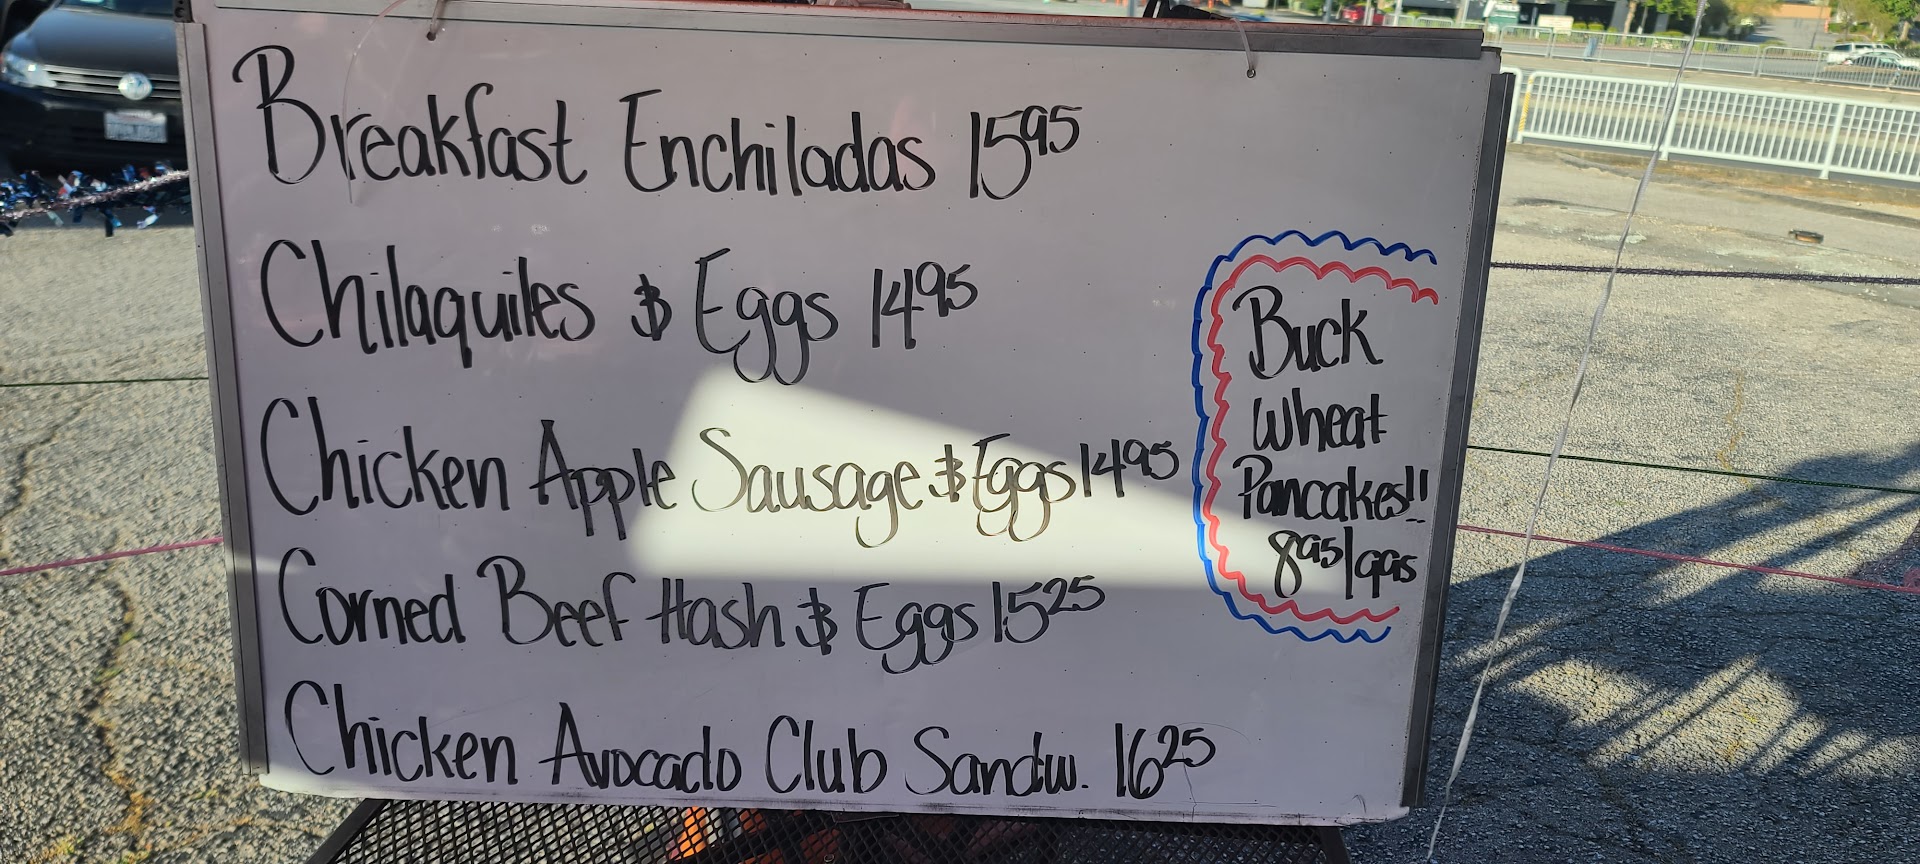 Breakfast Enchiladas 15 95
Chilaquiles & Eggs 14 95
Chicken Apple Sausage & Eggs 14 95
Corned Beef Hash & Eggs 15 25
Chicken Avocado Club Sandw. 16 25
Buck
Wheat
Pancakes!!
8 95/9 95